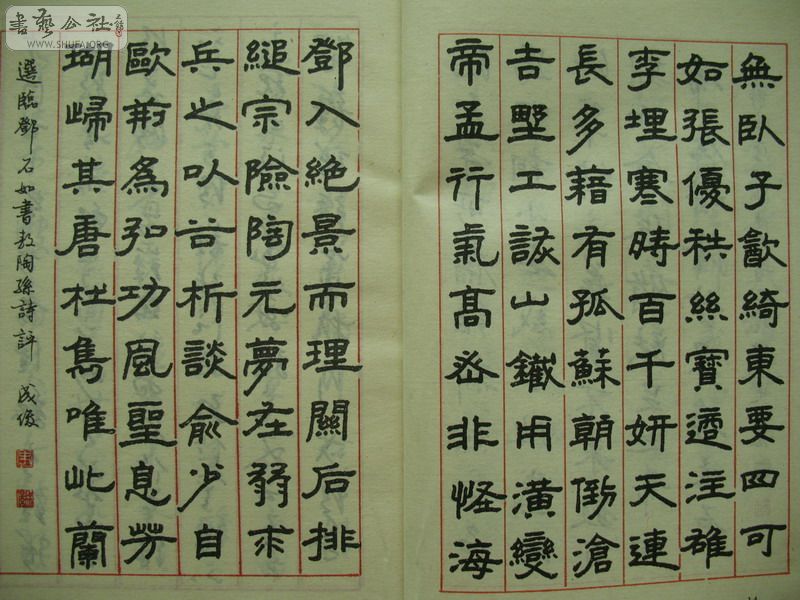 書藝公社
WWW.SHUFA.ORG
無臥子歙綺東要四可
如張優秩絲寶透注雄
李埋寒時百千妍天連
長多藉有孤蘇朝倒滄
吉野工詠山鐵用潢變
帝孟行氣高岳非怪海
鄧入絕景而理關后排
縋宗險陶元夢在弱求
兵之以谷析談俞少自
歐荊為弘功風聖息芳
瑚歸其唐杜雋唯此蘭
選臨鄧石如書敖陶孫詩評 成俊